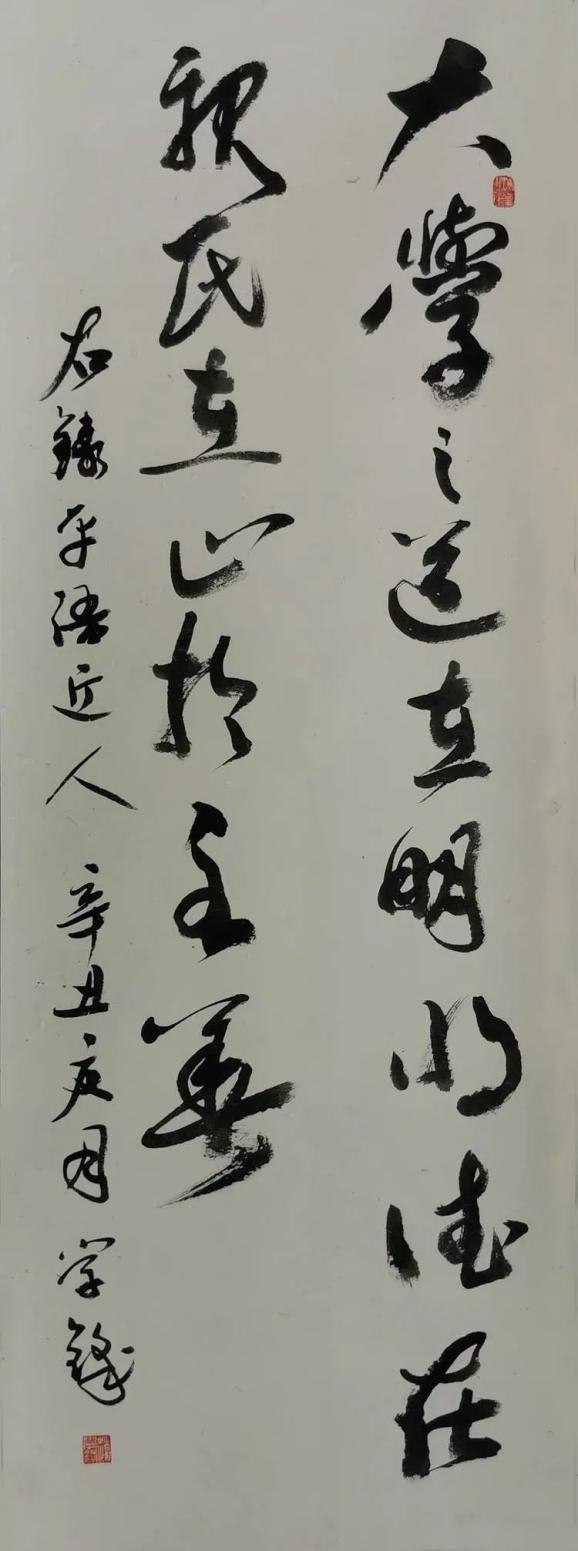 大學之道在明明德在
親民在止於至善
右錄平語近人 辛丑亥月 学